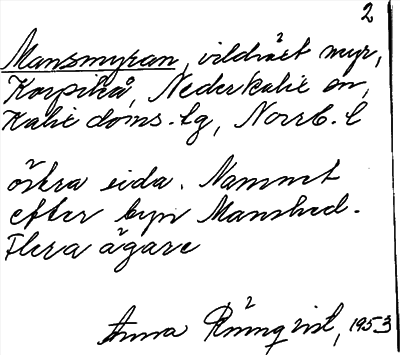 2
Mansmyran, vildväxt myr,
Korpikå, Nederkalix sn,
Kalix doms.-lg, Norrb. l
östra sida. Namnet
efter byn Mansbed.
Flera ägare
Anna Rönnqvist, 1953